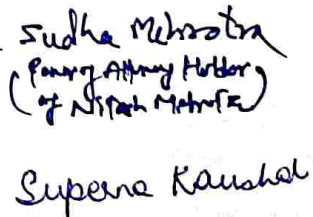 Sudha Mehrotra
(Power of Attorney Holder
of Nitesh Mehrotra)
Superna Kaushal